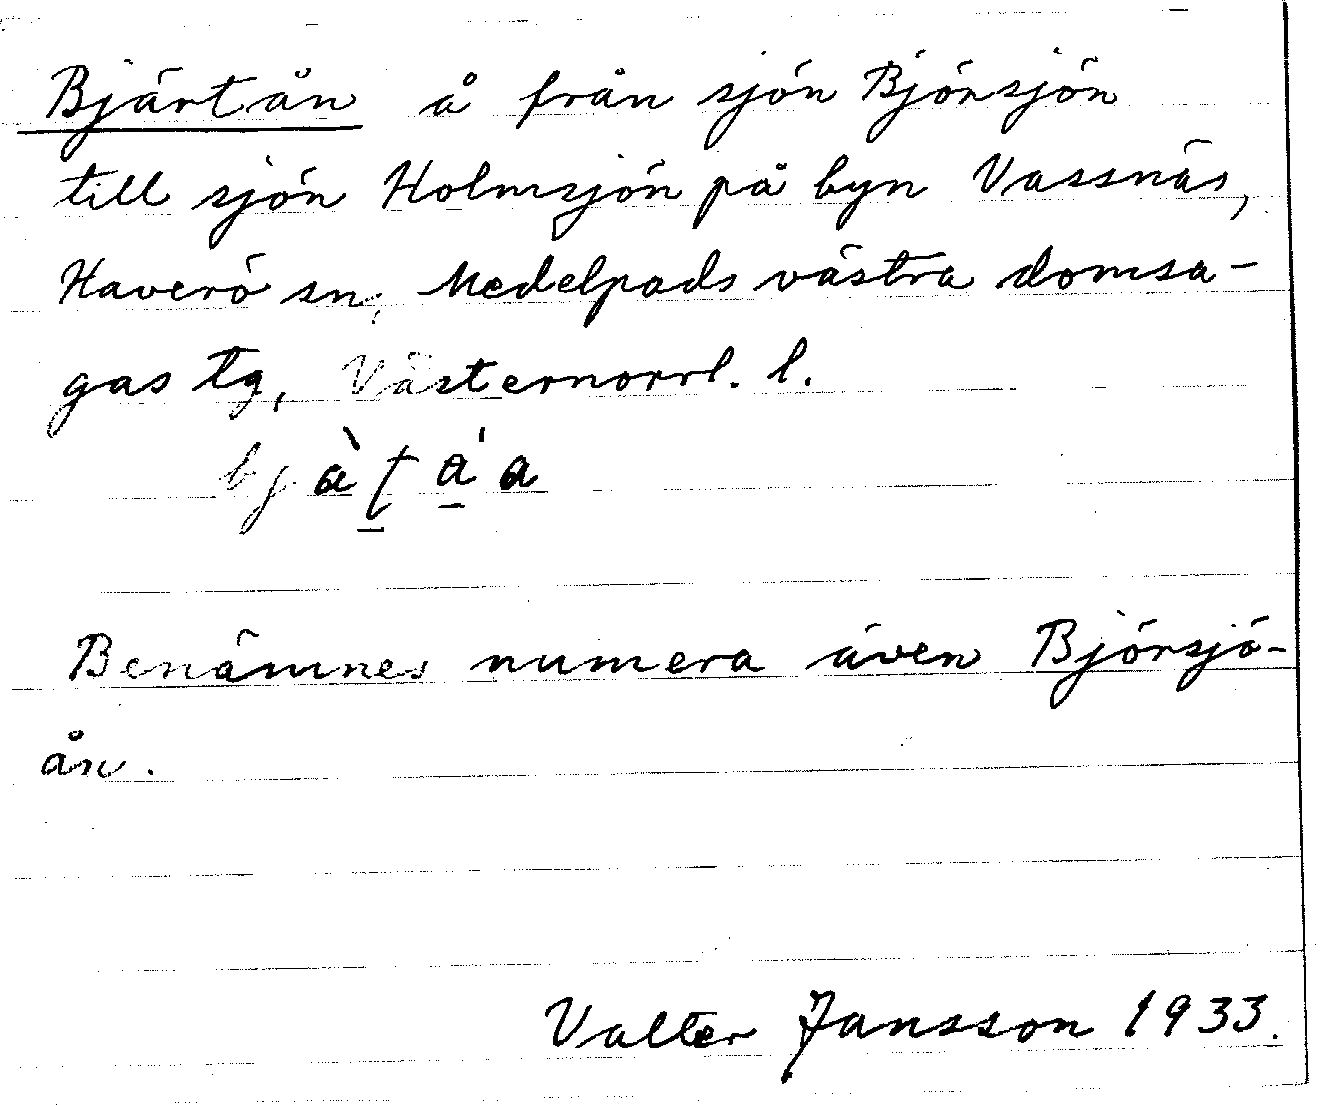 Bjärtån å från sjön Björsjön
till sjön Holmsjön på byn Vassnäs,
Haverö sn, Medelpads västra domsa-
gas tg, Västernorrl. l.
Benämnes numera även Björsjö-
ån.
Valter Jansson 1933.